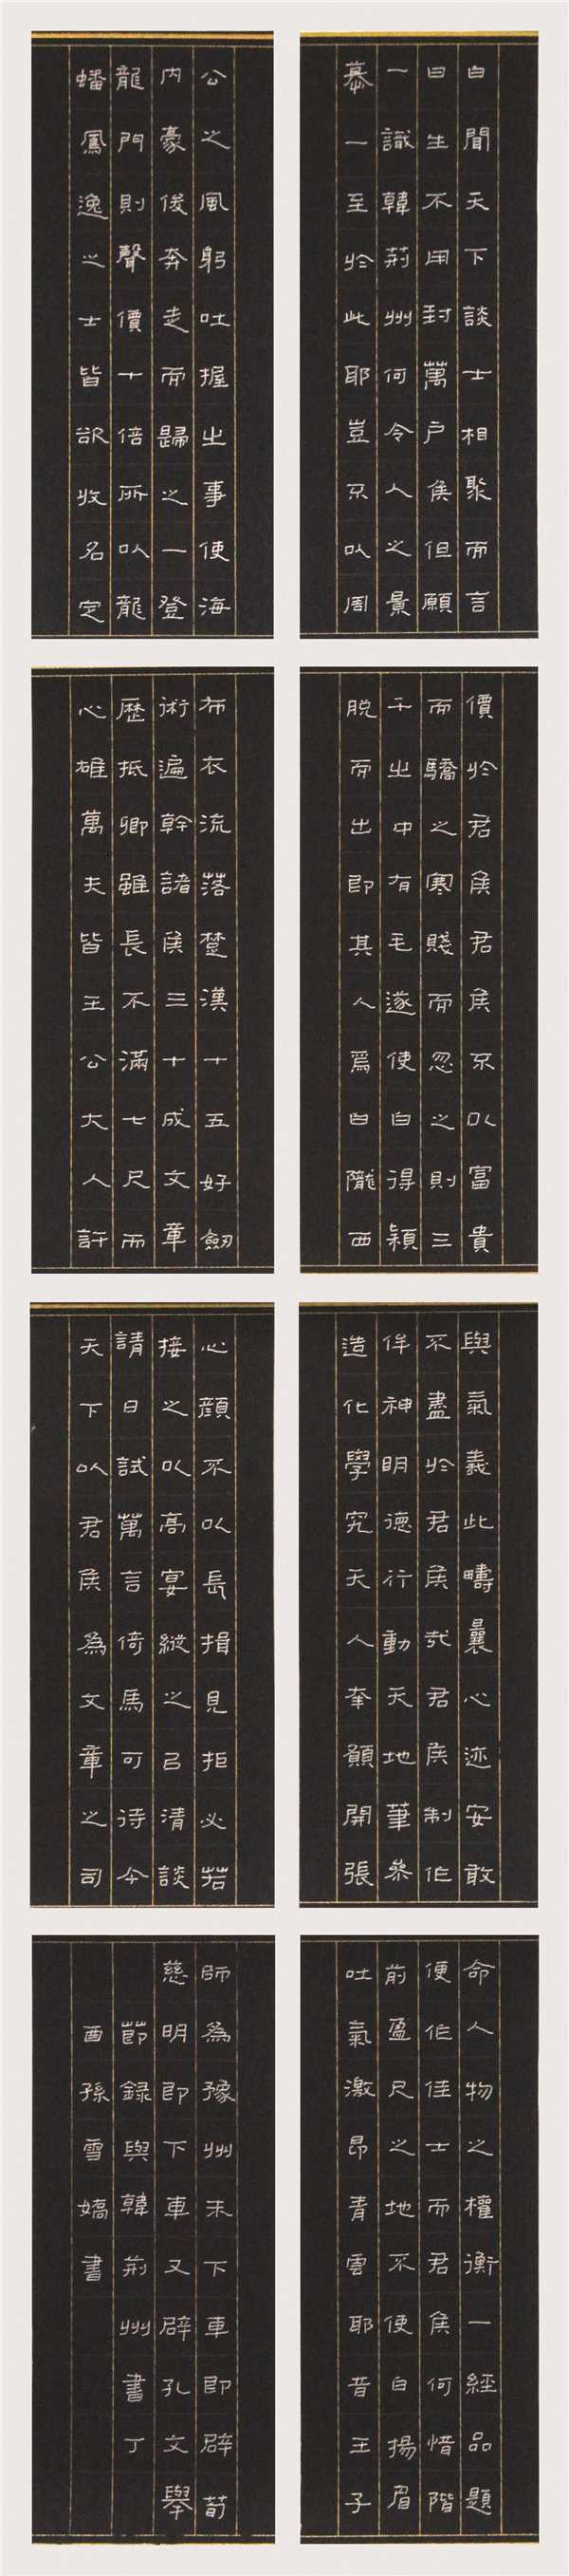 白聞天下談士相聚而言
曰生不用封萬户侯但願
一識韓荊州何令人之景
慕一至於此耶豈不以周
公之風躬吐握之事使海
内豪俊奔走而歸之一登
龍門則聲價十倍所以龍
蟠鳳逸之士皆欲收名定
價於君侯君侯不以富貴
而驕之寒賤而忽之則三
千之中有毛遂使白得穎
脫而出即其人焉白隴西
布衣流落楚漢十五好劒
術遍幹諸侯三十成文章
歷抵卿雖長不滿七尺而
心雄萬夫皆王公大人許
與氣義此疇曩心迹安敢
不盡於君侯哉君侯制作
侔神明德行動天地筆參
造化學究天人幸願開張
心顏不以長揖見拒必若
接之以高宴縱之以清談
請日試萬言倚馬可待今
天下以君侯為文章之司
命人物之權衡一經品題
便作佳士而君侯何惜階
前盈尺之地不使白揚眉
吐氣激昂青雲耶昔王子
師為豫州未下車即辟荀
慈明即下車又辟孔文舉
節錄與韓荊州書丁
酉孫雪嬌書